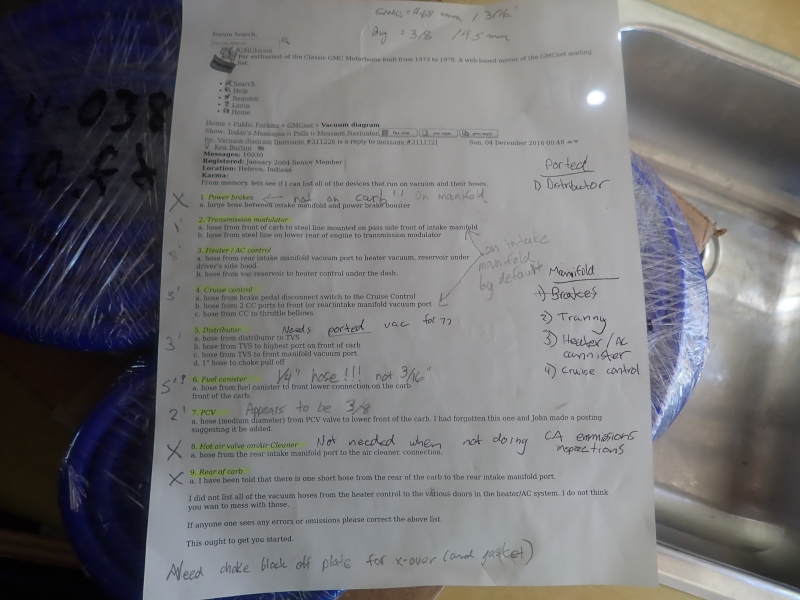 SMALL = 4.68 mm / 3/16"
Big = 3/8 / 9.5 mm
Forum Search:
GMCforum
For enthusiast of the Classic GMC Motorhome built from 1973 to 1978. A web-based mirror of the GMCnet mailing list.
Search
Help
Register
Login
Home
Home » Public Forums » GMCnet » Vacuum diagram
Show: Today's Messages :: Polls :: Message Navigator
Re: Vacuum diagram [message #311226 is a reply to message #311172] Sun, 04 December 2016 00:48
Ken Burton
Messages: 10030
Registered: January 2004 Senior Member
Location: Hebron, Indiana
Karma:
From memory, lets see if I can list all of the devices that run on vacuum and their hoses.
X 1. Power brakes ← not on carb!! On manifold
a. large hose between intake manifold and power brake booster
1' 2. Transmission modulator
a. hose from front of carb to steel line mounted on pass side front of intake manifold
b. hose from steel line on lower rear of engine to transmission modulator
3. Heater / AC control
a. hose from rear intake manifold vacuum port to heater vacuum, reservoir under
driver's side hood.
b. hose from vac reservoir to heater control under the dash.
4. Cruise control
a. hose from brake pedal disconnect switch to the Cruise Control
b. hose from 2 CC ports to front (or rear intake manifold vacuum port
c. hose from CC to throttle bellows
on intake
manifold
by default
5. Distributor Needs ported vac for ??
3' a. hose from distributor to TVS
b. hose from TVS to highest port on front of carb
c. hose from TVS to front manifold vacuum port.
d. 1" hose to choke pull off
5'? 6. Fuel canister 1/4" hose!!! not 3/16"
a. hose from fuel canister to front lower connection on the carb
front of the carb.
2' 7. PCV Appears to be 3/8
a. hose (medium diameter) from PCV valve to lower front of the carb. I had forgotten this one and John made a posting
suggesting it be added.
X 8. Hot air valve on Air Cleaner Not needed when not doing CA emmissions
inspections
a. hose from the rear intake manifold port to the air cleaner. connection.
X 9. Rear of carb
a. I have been told that there is one short hose from the rear of the carb to the rear intake manifold port.
I did not list all of the vacuum hoses from the heater control to the various doors in the heater/AC system. I do not think
you want to mess with those.
If anyone one sees any errors or omissions please correct the above list.
This ought to get you started.
Need choke block off plate for x-over (and gasket)
Ported
1) Distributor
Manifold
1) Brakes
2) Tranny
3) Heater / AC
cannister
4) Cruise control